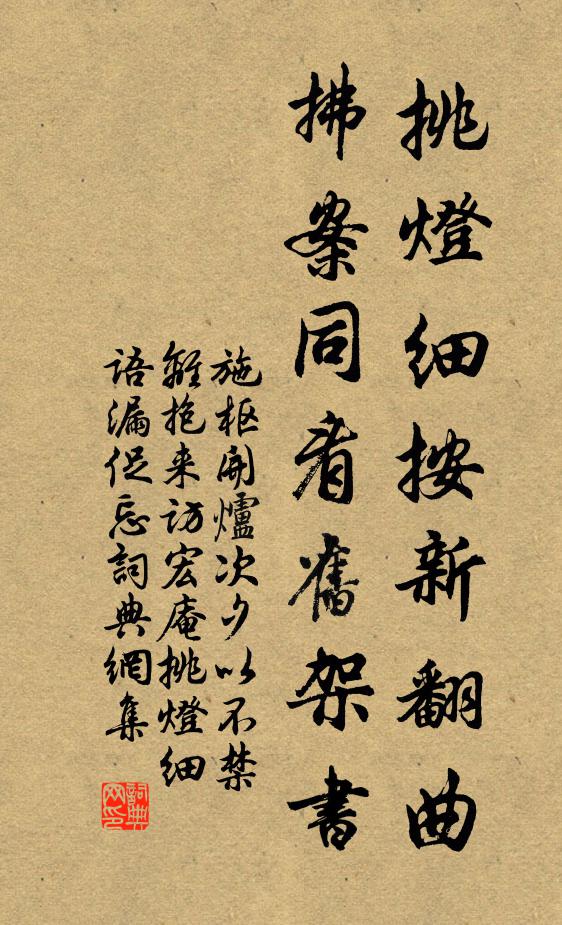 挑燈細按新翻曲
拂案同看舊架書
施枢開爐次夕以不禁
離抱来訪宏庵挑燈細
語漏促忘詞典網集
詞典
网印